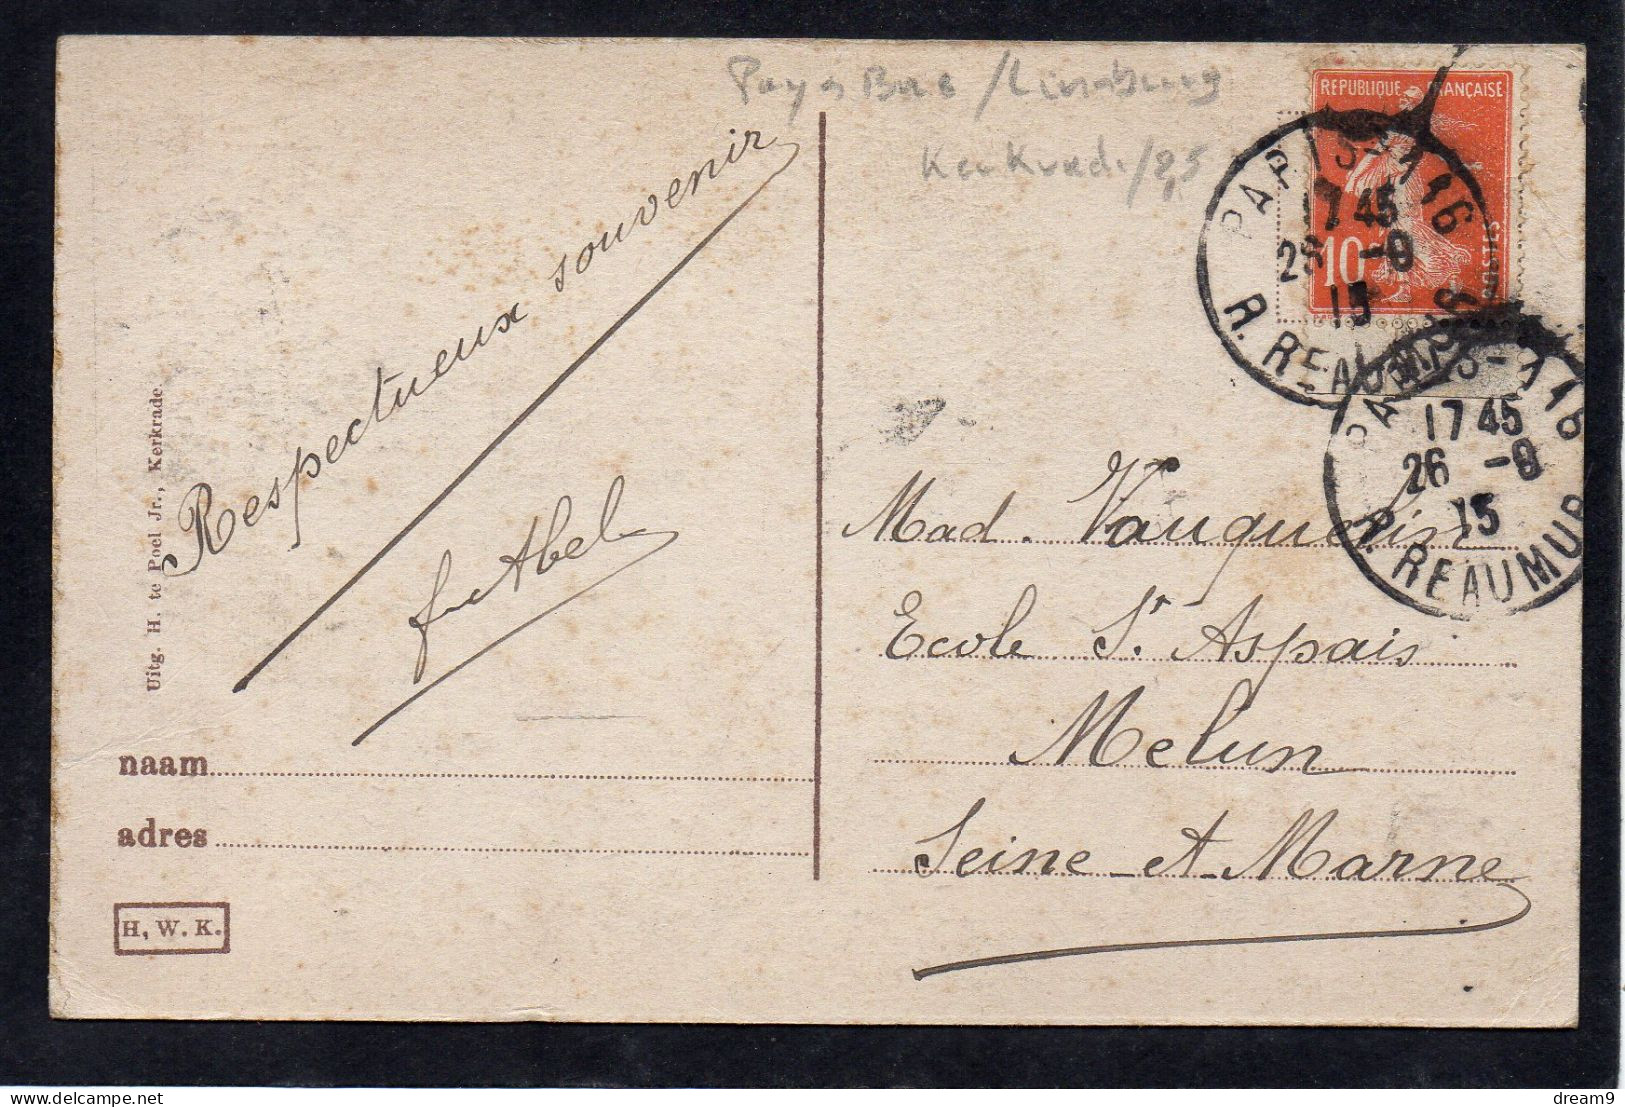 Pays Bas / Limburg
Kerkrade / 2,5
REPUBLIQUE FRANÇAISE
10
POSTES
PARIS-116
17 45
26 -9
13
R. REAUMUR
PARIS-116
17 45
26 -9
13
R. REAUMUR
Respectueux souvenir
Abel
Uitg. H. te Poel Jr., Kerkrade.
naam
adres
H. W. K.
Mad. Vauquelin
Ecole St Aspais
Melun
Seine-et-Marne
delcampe.net
dream9